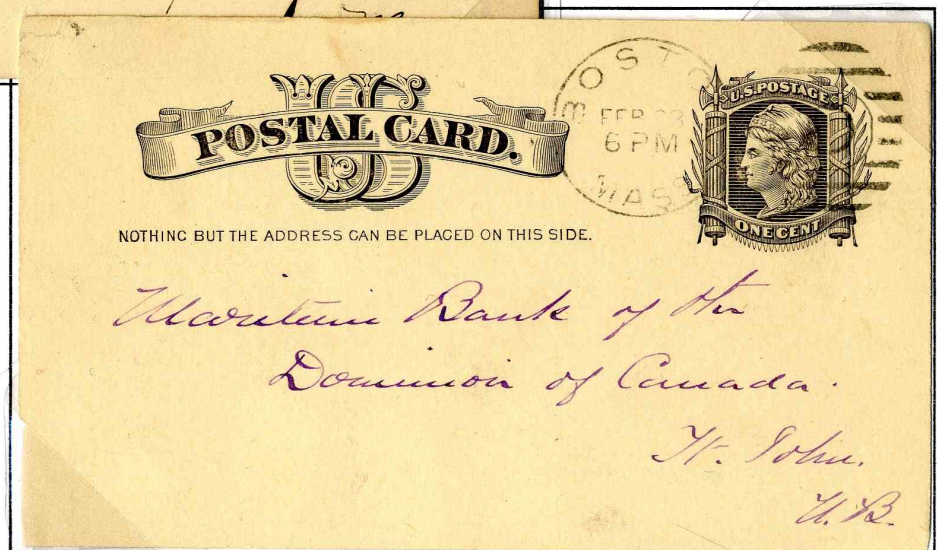 US
POSTAL CARD.
BOSTO
FEB 23
6 PM
MASS
U.S. POSTAGE
ONE CENT
NOTHING BUT THE ADDRESS CAN BE PLACED ON THIS SIDE.
Maritime Bank of the
Dominion of Canada.
St. John.
N.B.